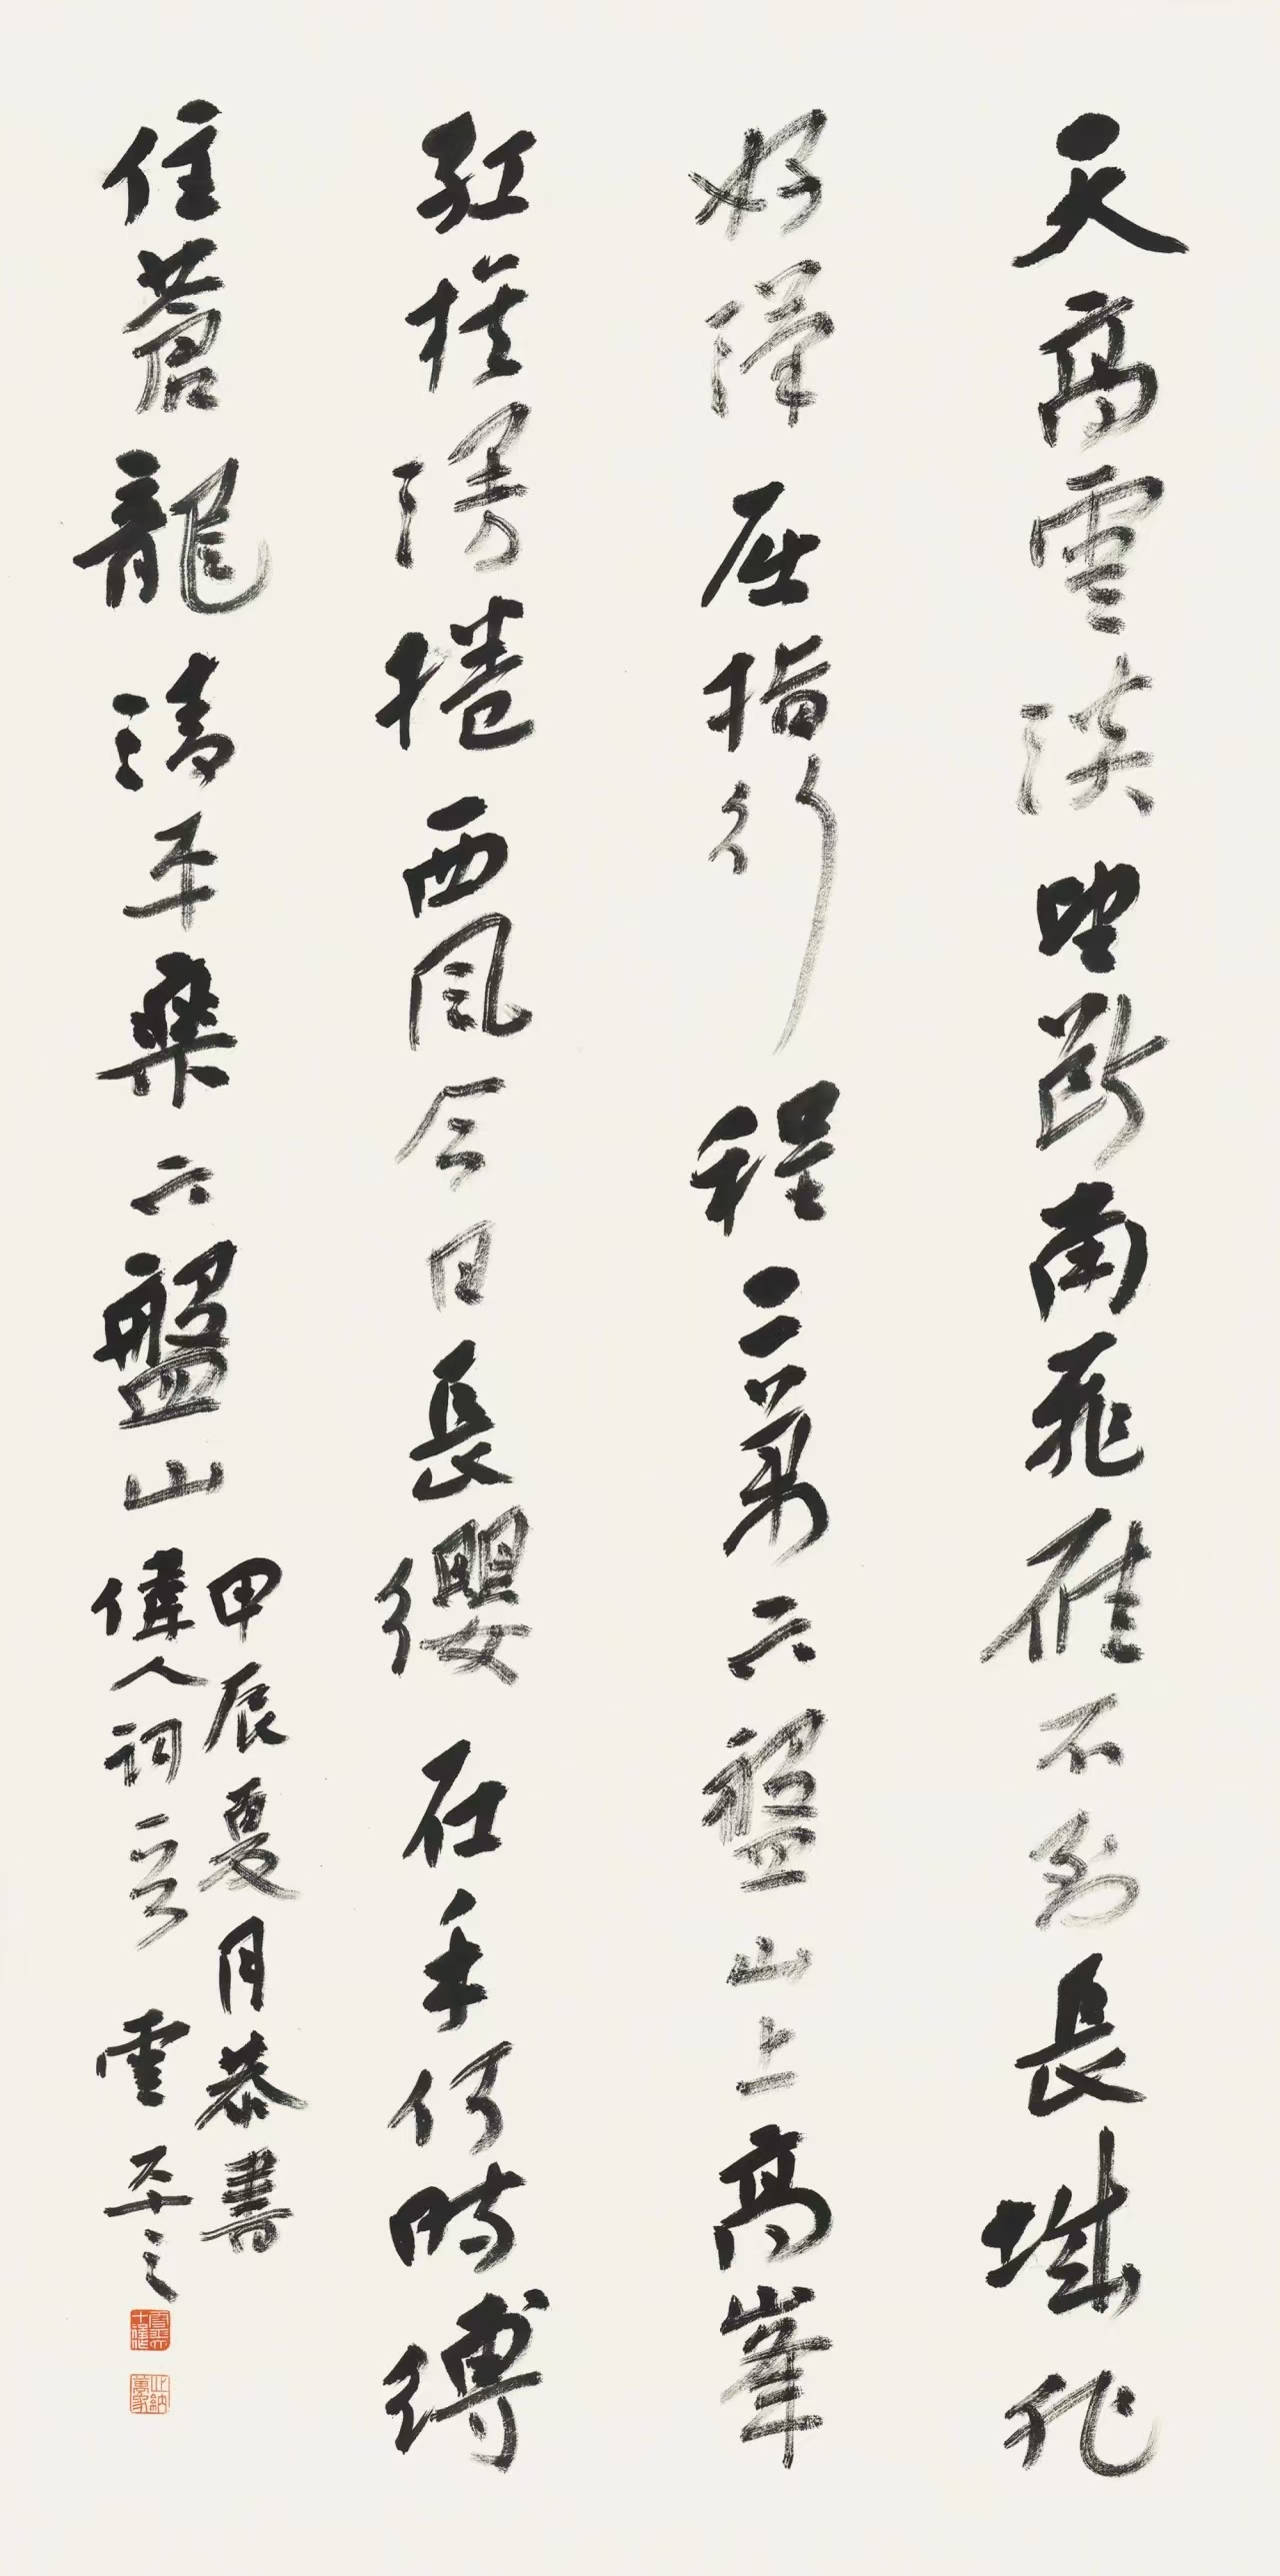 天高雲淡望斷南飛雁不到長城非
好漢屈指行程二萬六盤山上高峯
紅旗漫捲西風今日長纓在手何時縛
住蒼龍清平樂六盤山
甲辰夏月恭書
偉人詞 雲